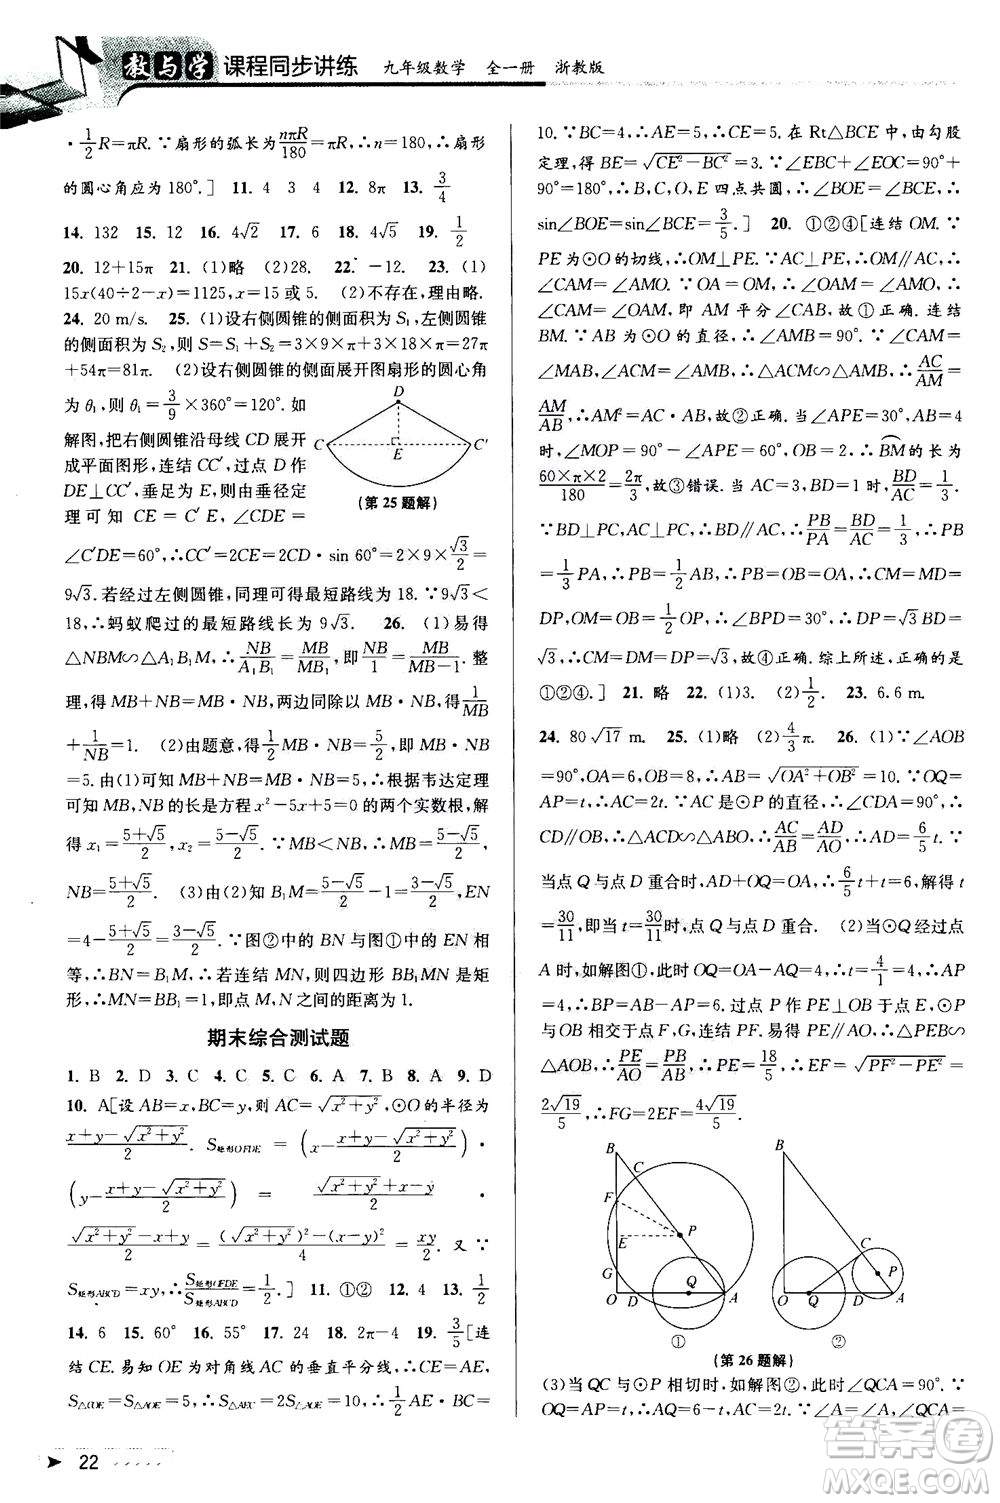 教与学 课程同步讲练 九年级数学 全一册 浙教版
·1/2R=πR. ∵扇形的弧长为nπR/180, ∴n=180, ∴扇形
的圆心角应为180°.] 11. 4 3 4 12. 8π 13. 3/4
14. 132 15. 12 16. 4√2 17. 6 18. 4√5 19. 1/2
20. 12+15π 21. (1)略 (2)28. 22. -12. 23. (1)
15x(40÷2-x)=1125, x=15 或 5. (2)不存在,理由略.
24. 20 m/s. 25. (1)设右侧圆锥的侧面积为S₁,左侧圆锥
的侧面积为S₂,则S=S₁+S₂=3×9×π+3×18×π=27π
+54π=81π. (2)设右侧圆锥的侧面展开图扇形的圆心角
为θ₁,则θ₁=3/9×360°=120°. 如
解图,把右侧圆锥沿母线CD展开
成平面图形,连结CC′,过点D作
DE⊥CC′,垂足为E,由垂径定
理可知 CE=C′E, ∠CDE=
D
C C′
E
(第25题解)
∠C′DE=60°, ∴CC′=2CE=2CD·sin 60°=2×9×√3/2=
9√3. 若经过左侧圆锥,同理可求最短路线为18. ∵9√3<
18, ∴蚂蚁爬过的最短路线长为9√3. 26. (1)易得
△NBM∽△A₁B₁M, ∴NB/A₁B₁=MB/MB₁, 即NB/1=MB/MB-1. 整
理,得MB+NB=MB·NB,两边同除以MB·NB得1/MB
+1/NB=1. (2)由题意,得MB·NB=5, ∴MB·NB/2=5/2
=5. 由(1)可知MB+NB=MB·NB=5, ∴根据韦达定理
可知MB,NB的长是方程x²-5x+5=0的两个实数根,解
得x₁=5+√5/2, x₂=5-√5/2. ∵MB<NB, ∴MB=5-√5/2,
NB=5+√5/2. (3)由(2)知B₁M=5-√5/2-1=3-√5/2, EN
=4-5+√5/2=3-√5/2. ∵图②中的BN与图①中的EN相
等, ∴BN=B₁M, ∴若连结MN,则四边形BB₁MN是矩
形, ∴MN=BB₁=1,即点M,N之间的距离为1.
期末综合测试题
1. B 2. D 3. C 4. C 5. C 6. A 7. B 8. A 9. D
10. A[设AB=x,BC=y,则AC=√x²+y²,⊙O的半径为
x+y-√x²+y²/2. S矩形OFDE=(x-x+y-√x²+y²/2)·
(y-x+y-√x²+y²/2)=x-y+√x²+y²/2·
√x²+y²-x+y/2=(√x²+y²)²-(x-y)²/4=xy/2. 又∵
S矩形ABCD=xy, ∴S矩形OFDE/S矩形ABCD=1/2.] 11. ①② 12. 4 13. 1/2
14. 6 15. 60° 16. 55° 17. 24 18. 2π-4 19. 3/5[连
结CE.易知OE为对角线AC的垂直平分线, ∴CE=AE,
S△COE=S△AOE=5, ∴S△ACE=2S△AOE=10, ∴1/2AE·BC=
10. ∵BC=4, ∴AE=5, ∴CE=5. 在Rt△BCE中,由勾股
定理,得BE=√CE²-BC²=3. ∵∠EBC+∠EOC=90°+
90°=180°, ∴B,C,O,E四点共圆, ∴∠BOE=∠BCE, ∴
sin∠BOE=sin∠BCE=3/5.] 20. ①②④[连结OM. ∵
PE为⊙O的切线, ∴OM⊥PE. ∵AC⊥PE, ∴OM∥AC, ∴
∠CAM=∠AMO. ∵OA=OM, ∴∠OAM=∠AMO, ∴
∠CAM=∠OAM,即AM平分∠CAB,故①正确. 连结
BM. ∵AB为⊙O的直径, ∴∠AMB=90°. ∵∠CAM=
∠MAB,∠ACM=∠AMB, ∴△ACM∽△AMB, ∴AC/AM=
AM/AB, ∴AM²=AC·AB,故②正确. ∵∠APE=30°,AB=4
时, ∠MOP=90°-∠APE=60°,OB=2. ∴BM的长为
60×π×2/180=2π/3,故③错误. 当AC=3,BD=1时,BD/AC=1/3.
∵BD⊥PC,AC⊥PC, ∴BD∥AC, ∴PB/PA=BD/AC=1/3, ∴PB
=1/3PA, ∴PB=1/2AB. ∵AB=2OB=2OA, ∴CM=MD=
DP,OM=OB=1/2OP, ∴∠BPD=30°, ∴DP=BD/tan30°=
√3, ∴CM=DM=DP=√3,故④正确. 综上所述,正确的是
①②④.] 21. 略 22. (1)3. (2)1/2. 23. 6.6 m.
24. 80√17 m. 25. (1)略 (2)4/3π. 26. (1)∵∠AOB
=90°, ∴AB=√OA²+OB²=10. ∵OQ=
AP=t, ∴AC=2t. ∵AC是⊙P的直径, ∴∠CDA=90°, ∴
CD∥OB, ∴△ACD∽△ABO, ∴AC/AB=AD/AO, ∴AD=6/5t. ∵
当点Q与点D重合时,AD+OQ=OA, ∴6/5t+t=6,解得t
=30/11,即当t=30/11时,点Q与点D重合. (2)当⊙Q经过点
A时,如解图①,此时OQ=OA-QA=4, ∴t=4/1=4, ∴AP
=4, ∴BP=AB-AP=6. 过点P作PE⊥OB于点E,⊙P
与OB相交于点F,G,连结PF.易得PE∥OA, ∴△PEB∽
△AOB, ∴PE/AO=PB/AB, ∴PE=18/5, ∴EF=√PF²-PE²=
2√19/5, ∴FG=2EF=4√19/5.
B
C
F
P
E
G
Q
O D A
①
B
C
P
O Q D A
②
(第26题解)
(3)当QC与⊙P相切时,如解图②,此时∠QCA=90°. ∵
OQ=AP=t, ∴AQ=6-t,AC=2t. ∵∠A=∠A,∠QCA=
22
答案圈
MXQE.COM